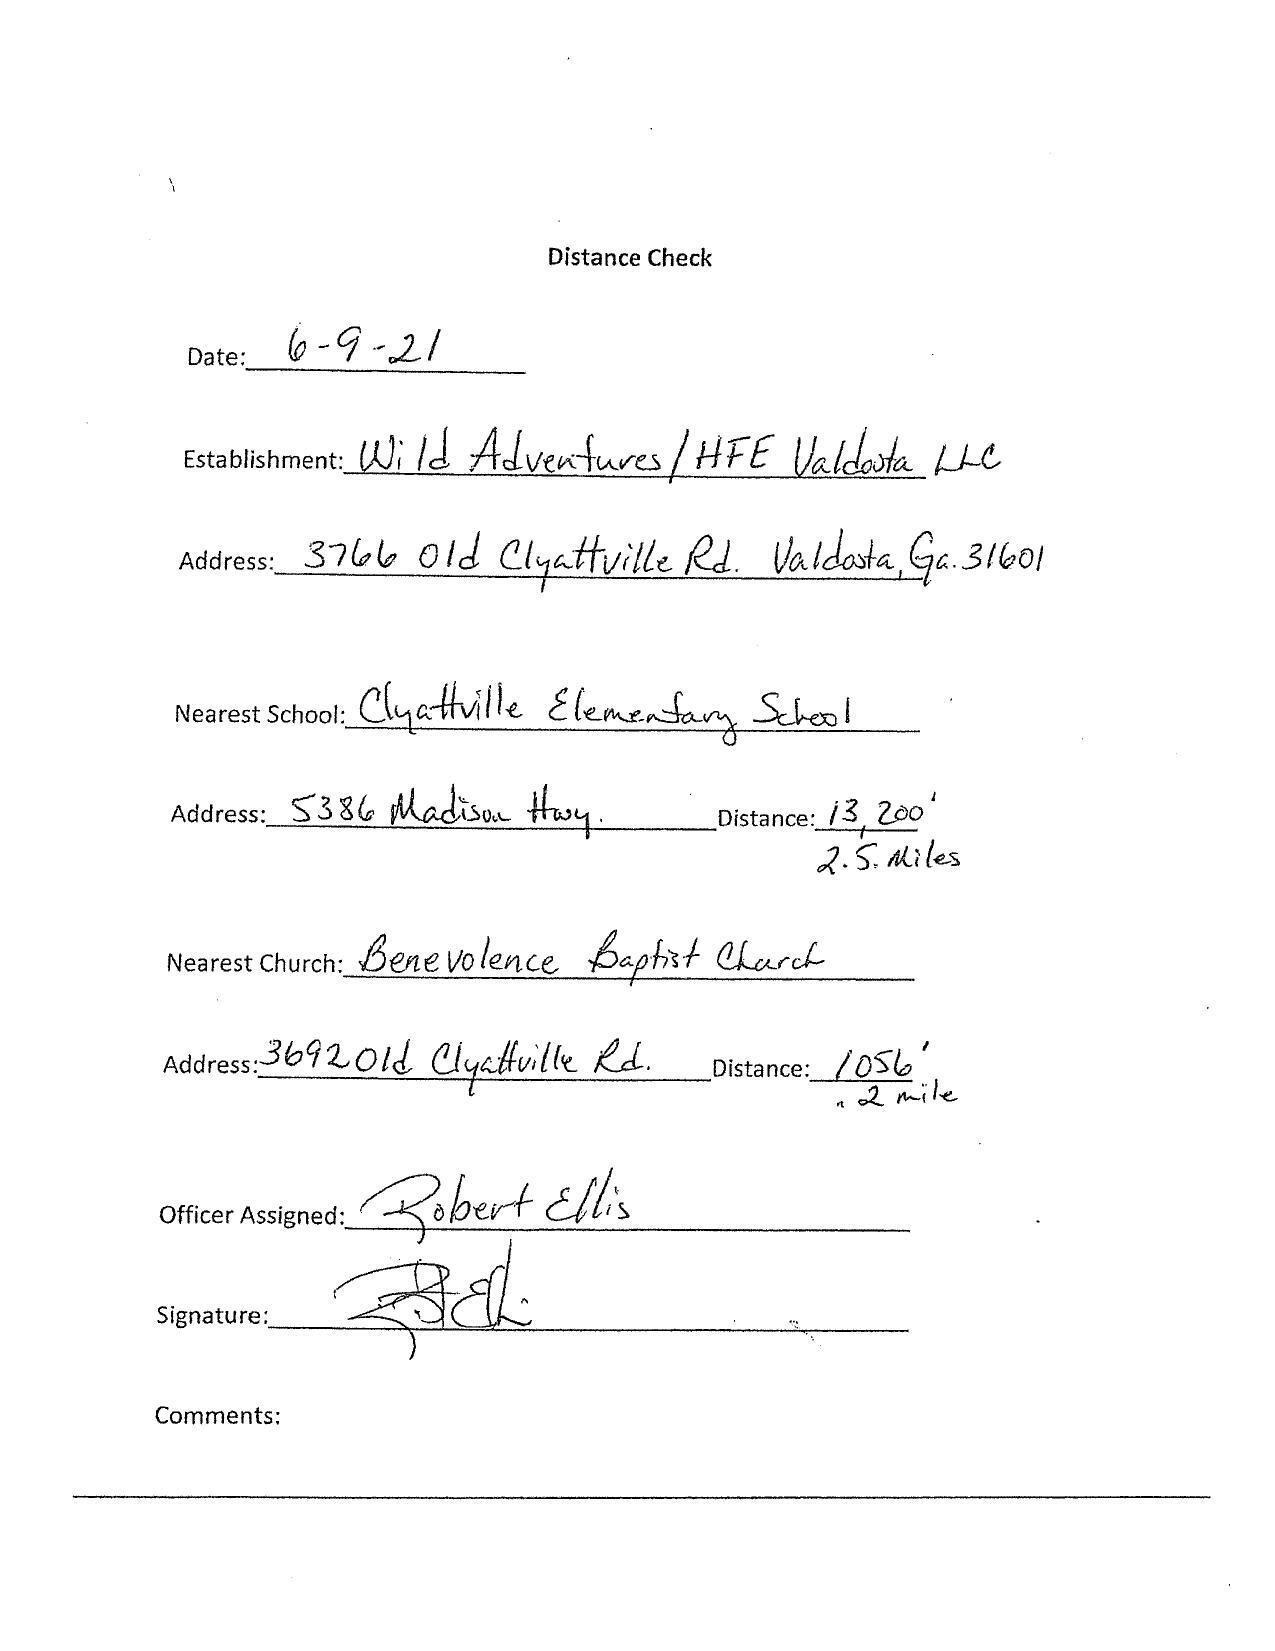 Distance Check
Date: 6-9-21
Establishment: Wild Adventures/HFE Valdosta LLC
Address: 3766 Old Clyattville Rd. Valdosta, Ga. 31601
Nearest School: Clyattville Elementary School
Address: 5386 Madison Hwy. Distance: 13,200'
2.5. Miles
Nearest Church: Benevolence Baptist Church
Address: 3692 Old Clyattville Rd. Distance: 1056'
.2 mile
Officer Assigned: Robert Ellis
Signature:
Comments: